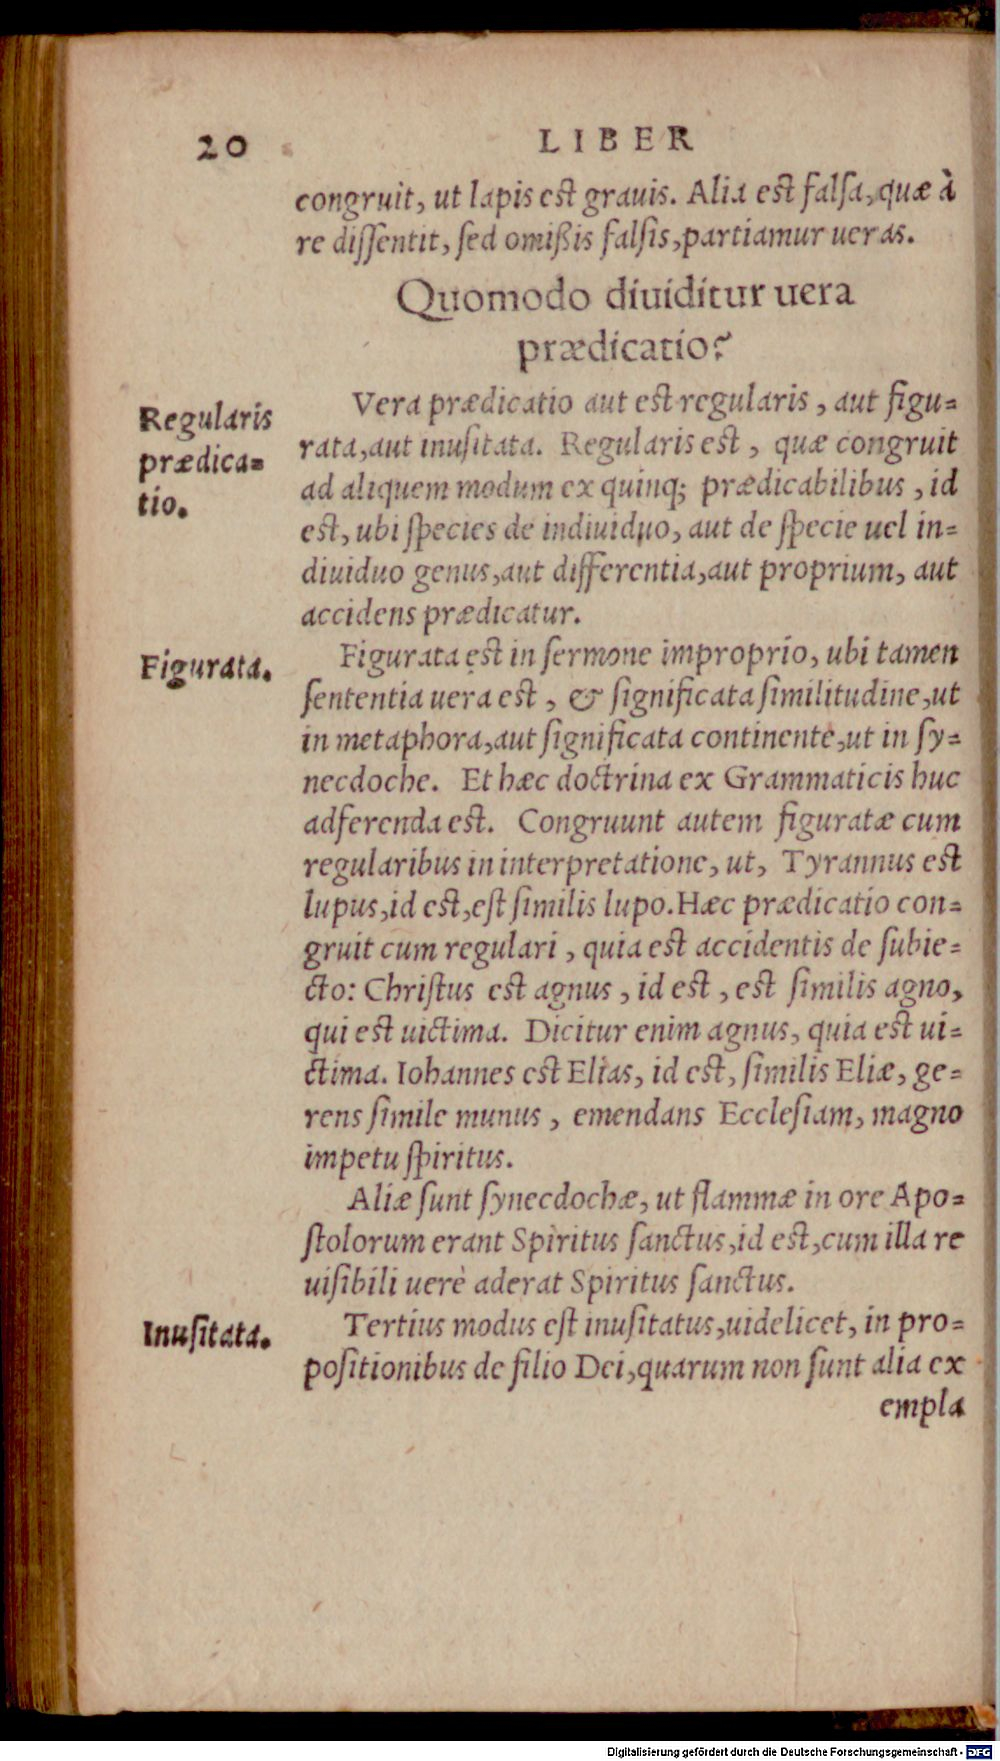 20 LIBER
congruit, ut lapis est grauis. Alia est falſa, quæ à
re diſſentit, ſed omißis falſis, partiamur ueras.
Quomodo diuiditur uera
prædicatio?
Regularis
prædica=
tio.
Vera prædicatio aut est regularis, aut figu=
rata, aut inuſitata. Regularis est, quæ congruit
ad aliquem modum ex quinq; prædicabilibus, id
est, ubi ſpecies de indiuiduo, aut de ſpecie uel in=
diuiduo genus, aut differentia, aut proprium, aut
accidens prædicatur.
Figurata.
Figurata est in ſermone improprio, ubi tamen
ſententia uera est, & ſignificata ſimilitudine, ut
in metaphora, aut ſignificata continente, ut in ſy=
necdoche. Et hæc doctrina ex Grammaticis huc
adferenda est. Congruunt autem figuratæ cum
regularibus in interpretatione, ut, Tyrannus est
lupus, id est, eſt ſimilis lupo. Hæc prædicatio con=
gruit cum regulari, quia est accidentis de ſubie=
cto: Chriſtus est agnus, id est, est ſimilis agno,
qui est uictima. Dicitur enim agnus, quia est ui=
ctima. Iohannes est Elias, id est, ſimilis Eliæ, ge=
rens ſimile munus, emendans Eccleſiam, magno
impetu ſpiritus.
Aliæ ſunt ſynecdochæ, ut flammæ in ore Apo=
ſtolorum erant Spiritus ſanctus, id est, cum illa re
uiſibili uerè aderat Spiritus ſanctus.
Inuſitata.
Tertius modus eſt inuſitatus, uidelicet, in pro=
poſitionibus de filio Dei, quarum non ſunt alia ex
empla
Digitalisierung gefördert durch die Deutsche Forschungsgemeinschaft - DFG